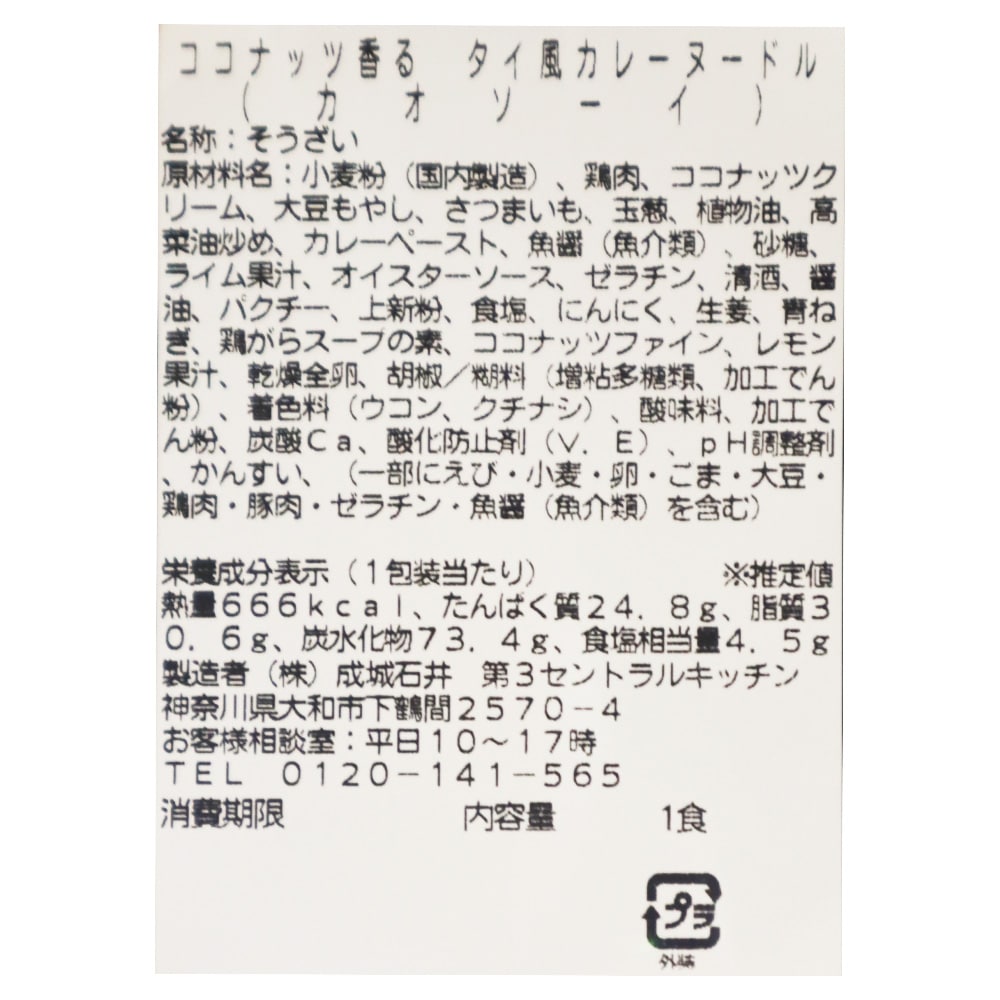 ココナッツ香る　タイ風カレーヌードル
（カオソーイ）
名称：そうざい
原材料名：小麦粉（国内製造）、鶏肉、ココナッツク
リーム、大豆もやし、さつまいも、玉葱、植物油、高
菜油炒め、カレーペースト、魚醤（魚介類）、砂糖、
ライム果汁、オイスターソース、ゼラチン、清酒、醤
油、パクチー、上新粉、食塩、にんにく、生姜、青ね
ぎ、鶏がらスープの素、ココナッツファイン、レモン
果汁、乾燥全卵、胡椒／糊料（増粘多糖類、加工でん
粉）、着色料（ウコン、クチナシ）、酸味料、加工で
ん粉、炭酸Ｃａ、酸化防止剤（Ｖ．Ｅ）、ｐＨ調整剤
、かんすい、（一部にえび・小麦・卵・ごま・大豆・
鶏肉・豚肉・ゼラチン・魚醤（魚介類）を含む）
栄養成分表示（１包装当たり）　※推定値
熱量６６６ｋｃａｌ、たんぱく質２４．８ｇ、脂質３
０．６ｇ、炭水化物７３．４ｇ、食塩相当量４．５ｇ
製造者（株）成城石井　第３セントラルキッチン
神奈川県大和市下鶴間２５７０－４
お客様相談室：平日１０～１７時
ＴＥＬ　０１２０－１４１－５６５
消費期限　内容量　1食
プラ